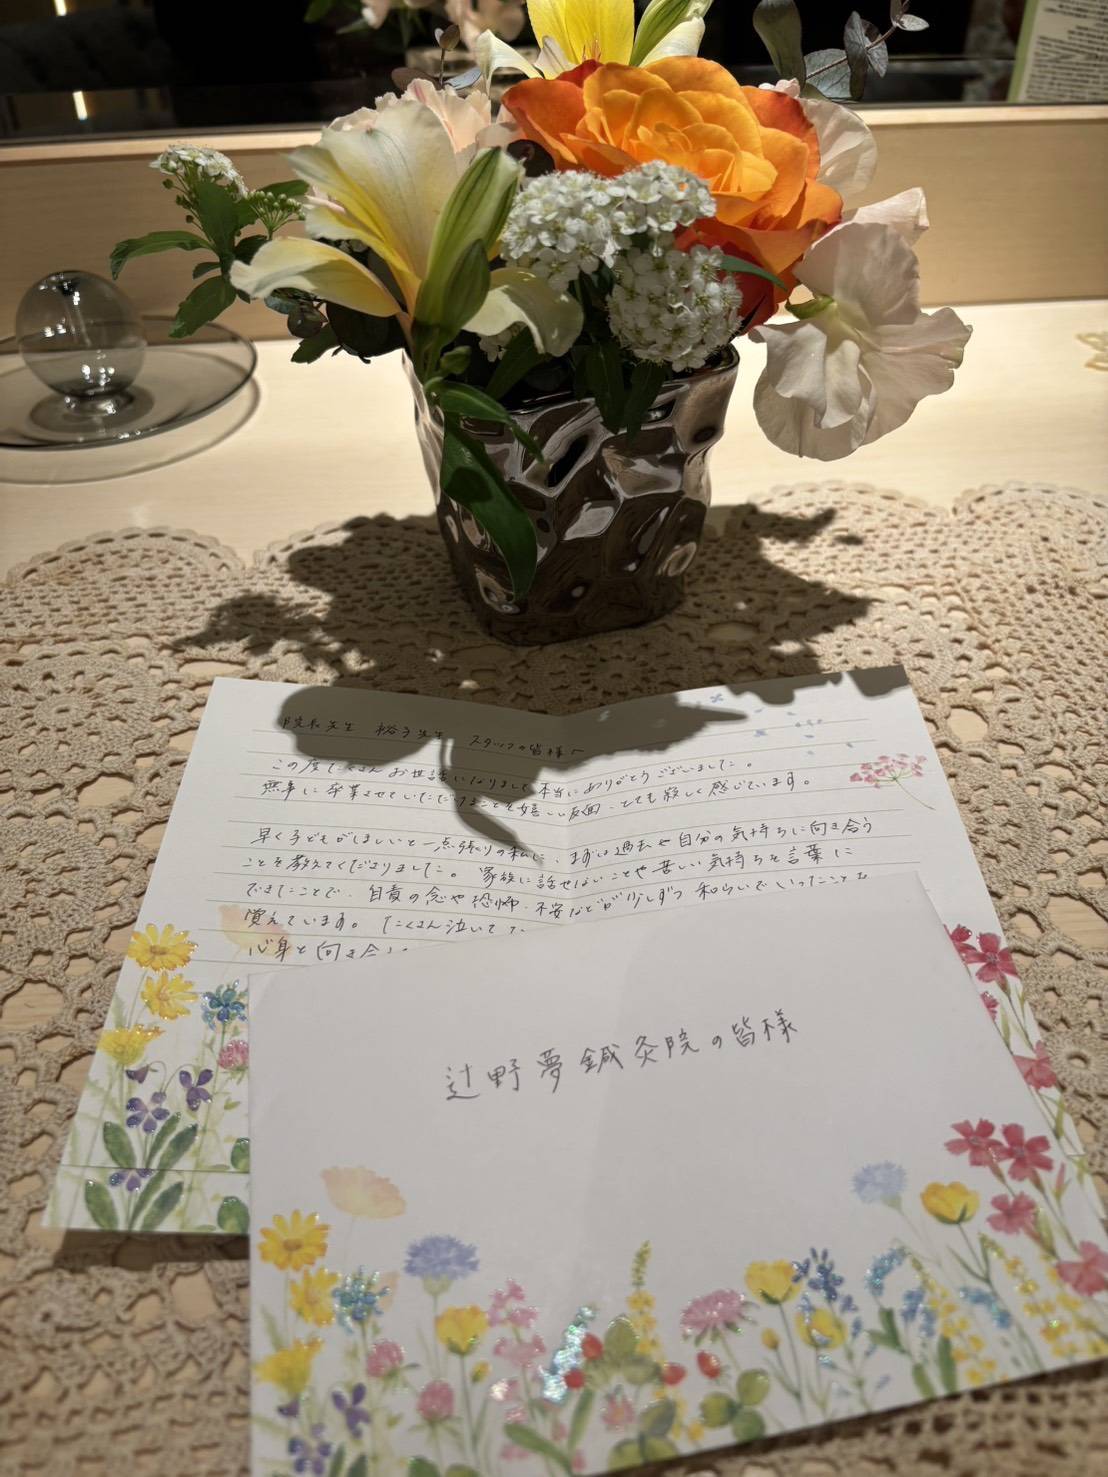 院長先生 裕子先生 スタッフの皆様へ
この度たくさんお世話になりまして本当にありがとうございました。
無事に卒業させていただけることを嬉しい反面、とても寂しく感じています。
早く子どもがほしいと一点張りの私に、まずは過去や自分の気持ちに向き合う
ことを教えてくださりました。家族に話せないことや苦しい気持ちを言葉に
できたことで、自責の念や恐怖、不安などが少しずつ和らいでいったことを
覚えています。たくさん泣いて
心身と向き合
辻野夢鍼灸院の皆様